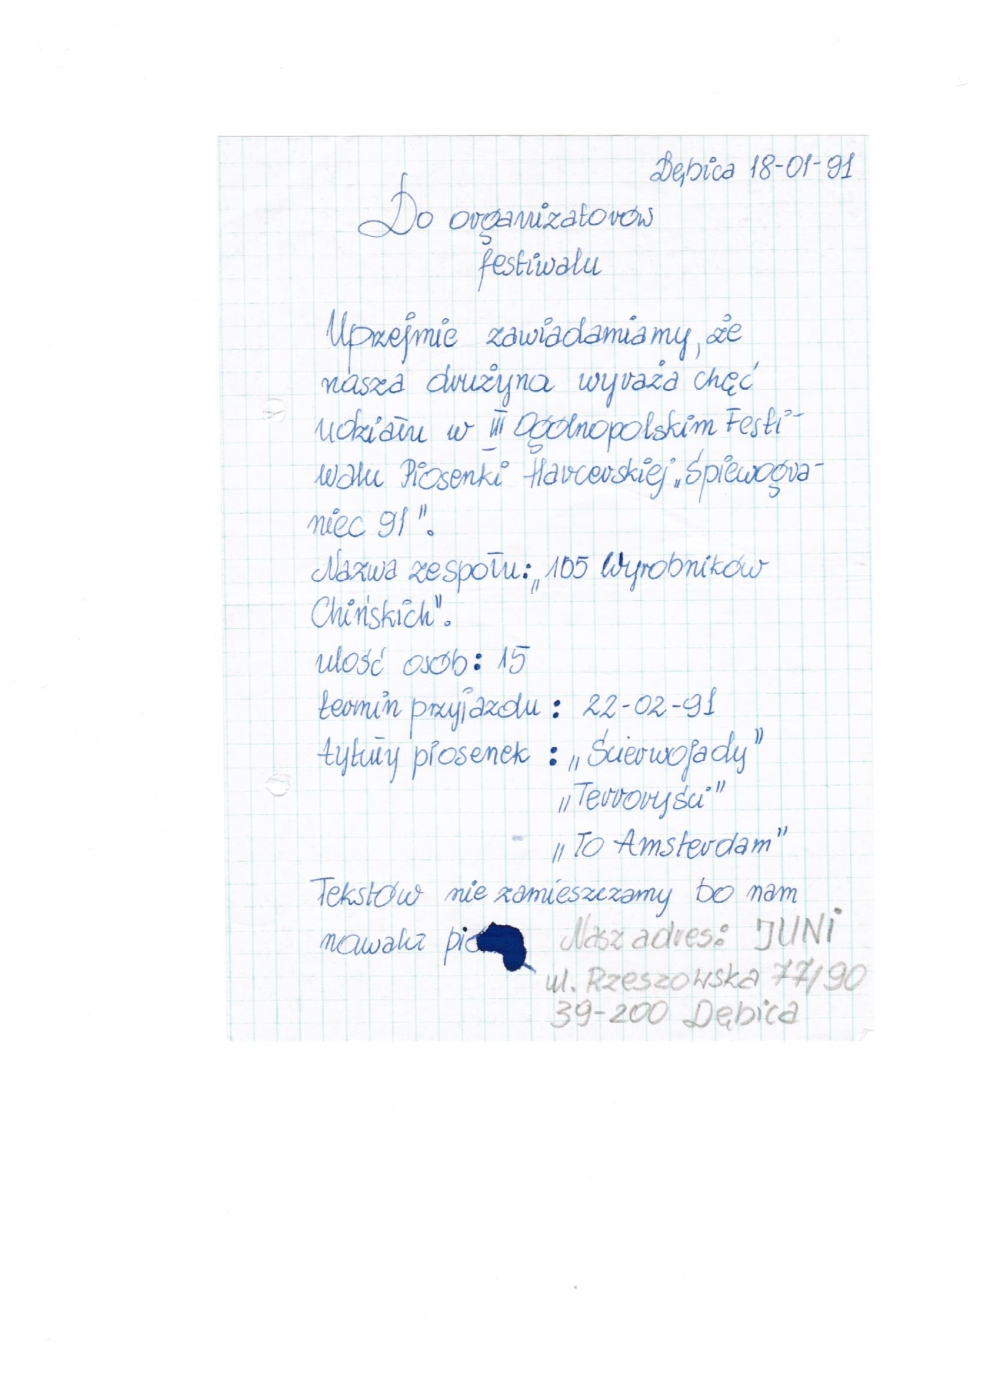 Dębica 18-01-91
Do organizatorów
festiwalu
Uprzejmie zawiadamiamy, że
nasza drużyna wyraża chęć
udziału w III Ogólnopolskim Festi-
walu Piosenki Harcerskiej „Śpiewogra-
niec 91".
Nazwa zespołu: „105 Wyrobników
Chińskich".
ilość osób: 15
termin przyjazdu : 22-02-91
tytuły piosenek : „Ścierwojady"
„Terroryści"
„To Amsterdam"
Tekstów nie zamieszczamy bo nam
nawala
Nasz adres: JUNI
ul. Rzeszowska 77/90
39-200 Dębica